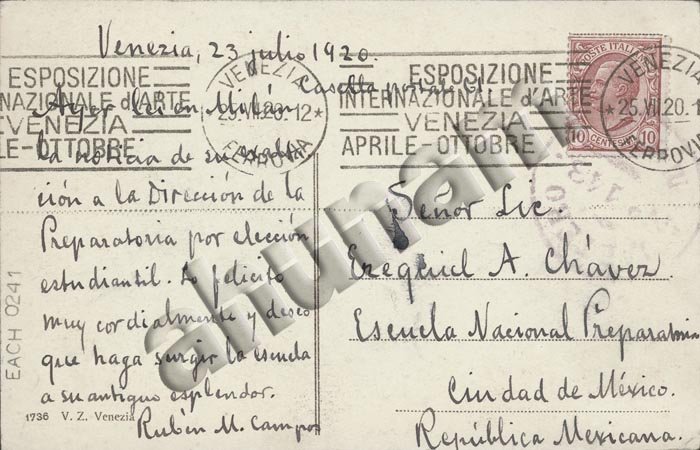 Venezia, 23 julio 1920
Casella postale 61
Ayer leí en Milán
la noticia de su exalta-
ción a la Dirección de la
Preparatoria por elección
estudiantil. Lo felicito
muy cordialmente y deseo
que haga surgir la escuela
a su antiguo esplendor.
Rubén M. Campos
1736 V. Z. Venezia
EACH 0241
ESPOSIZIONE
INTERNAZIONALE d'ARTE
VENEZIA
APRILE-OTTOBRE
VENEZIA
25.VII.20.12
FERROVIA
ESPOSIZIONE
INTERNAZIONALE d'ARTE
VENEZIA
APRILE-OTTOBRE
POSTE ITALIANE
10 CENTESIMI 10
VENEZIA
25.VII.20.
FERROVIA
Señor Lic.
Ezequiel A. Chávez
Escuela Nacional Preparatoria
Ciudad de México.
República Mexicana.
ahunam